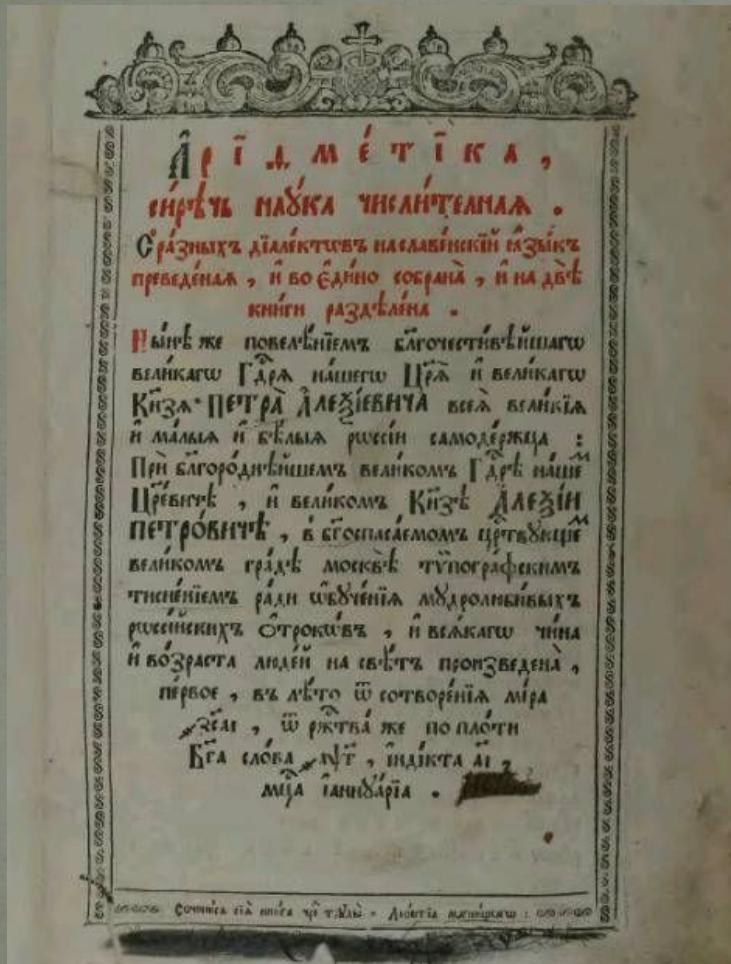 А҆ріѳме́тїка,
си́рѣчь наꙋ́ка числи́телная.
С̾ра́зныхъ дїале́ктѡвъ на славе́нскїй ѧ҆зы́къ
преведе́ная, и҆ во є҆ди́но собрана̀, и҆ на двѣ̀
кни́ги раздѣле́на.
Ны́нѣ же повелѣ́нїемъ бл҃гочести́вѣйшагѡ
вели́кагѡ Гдⷭ҇рѧ на́шегѡ Цр҃ѧ̀ и҆ вели́кагѡ
Кн҃зѧ ПЕТРА̀ А҆ЛЕѮІ́ЕВИЧА всеѧ̀ вели́кїѧ
и҆ ма́лыѧ и҆ бѣ́лыѧ рѡссі́и самоде́ржца :
Прѝ бл҃горо́днѣйшемъ вели́комъ Гдⷭ҇рѣ на́шеⷨ
Цр҃е́вичѣ, и҆ вели́комъ Кн҃зѣ А҆ЛЕѮІ́И
ПЕТРО́ВИЧѢ, в̾ бг҃оспаса́емомъ црⷭ҇твꙋ́ющеⷨ
вели́комъ гра́дѣ москвѣ̀ тѷпогра́фскимъ
тисне́нїемъ ра́ди ѡ҆бꙋче́нїѧ мꙋдролюби́выхъ
рѡссі́йскихъ ѻ҆́трокѡвъ, и҆ всѧ́кагѡ чи́на
и҆ во́зраста люде́й на свѣ́тъ произведена̀,
пе́рвое, въ лѣ́то ѿ сотворе́нїѧ мі́ра
҂зсаі, ѿ ржⷭ҇тва́ же по пло́ти
Бг҃а сло́ва ҂аѱг, і҆нді́кта аі,
мцⷭ҇а і҆аннꙋа́рїа.
Сочини́сѧ сїѧ̀ кни́га чрⷥе́ трꙋды̀ Лео́нтїа магни́цкагѡ :